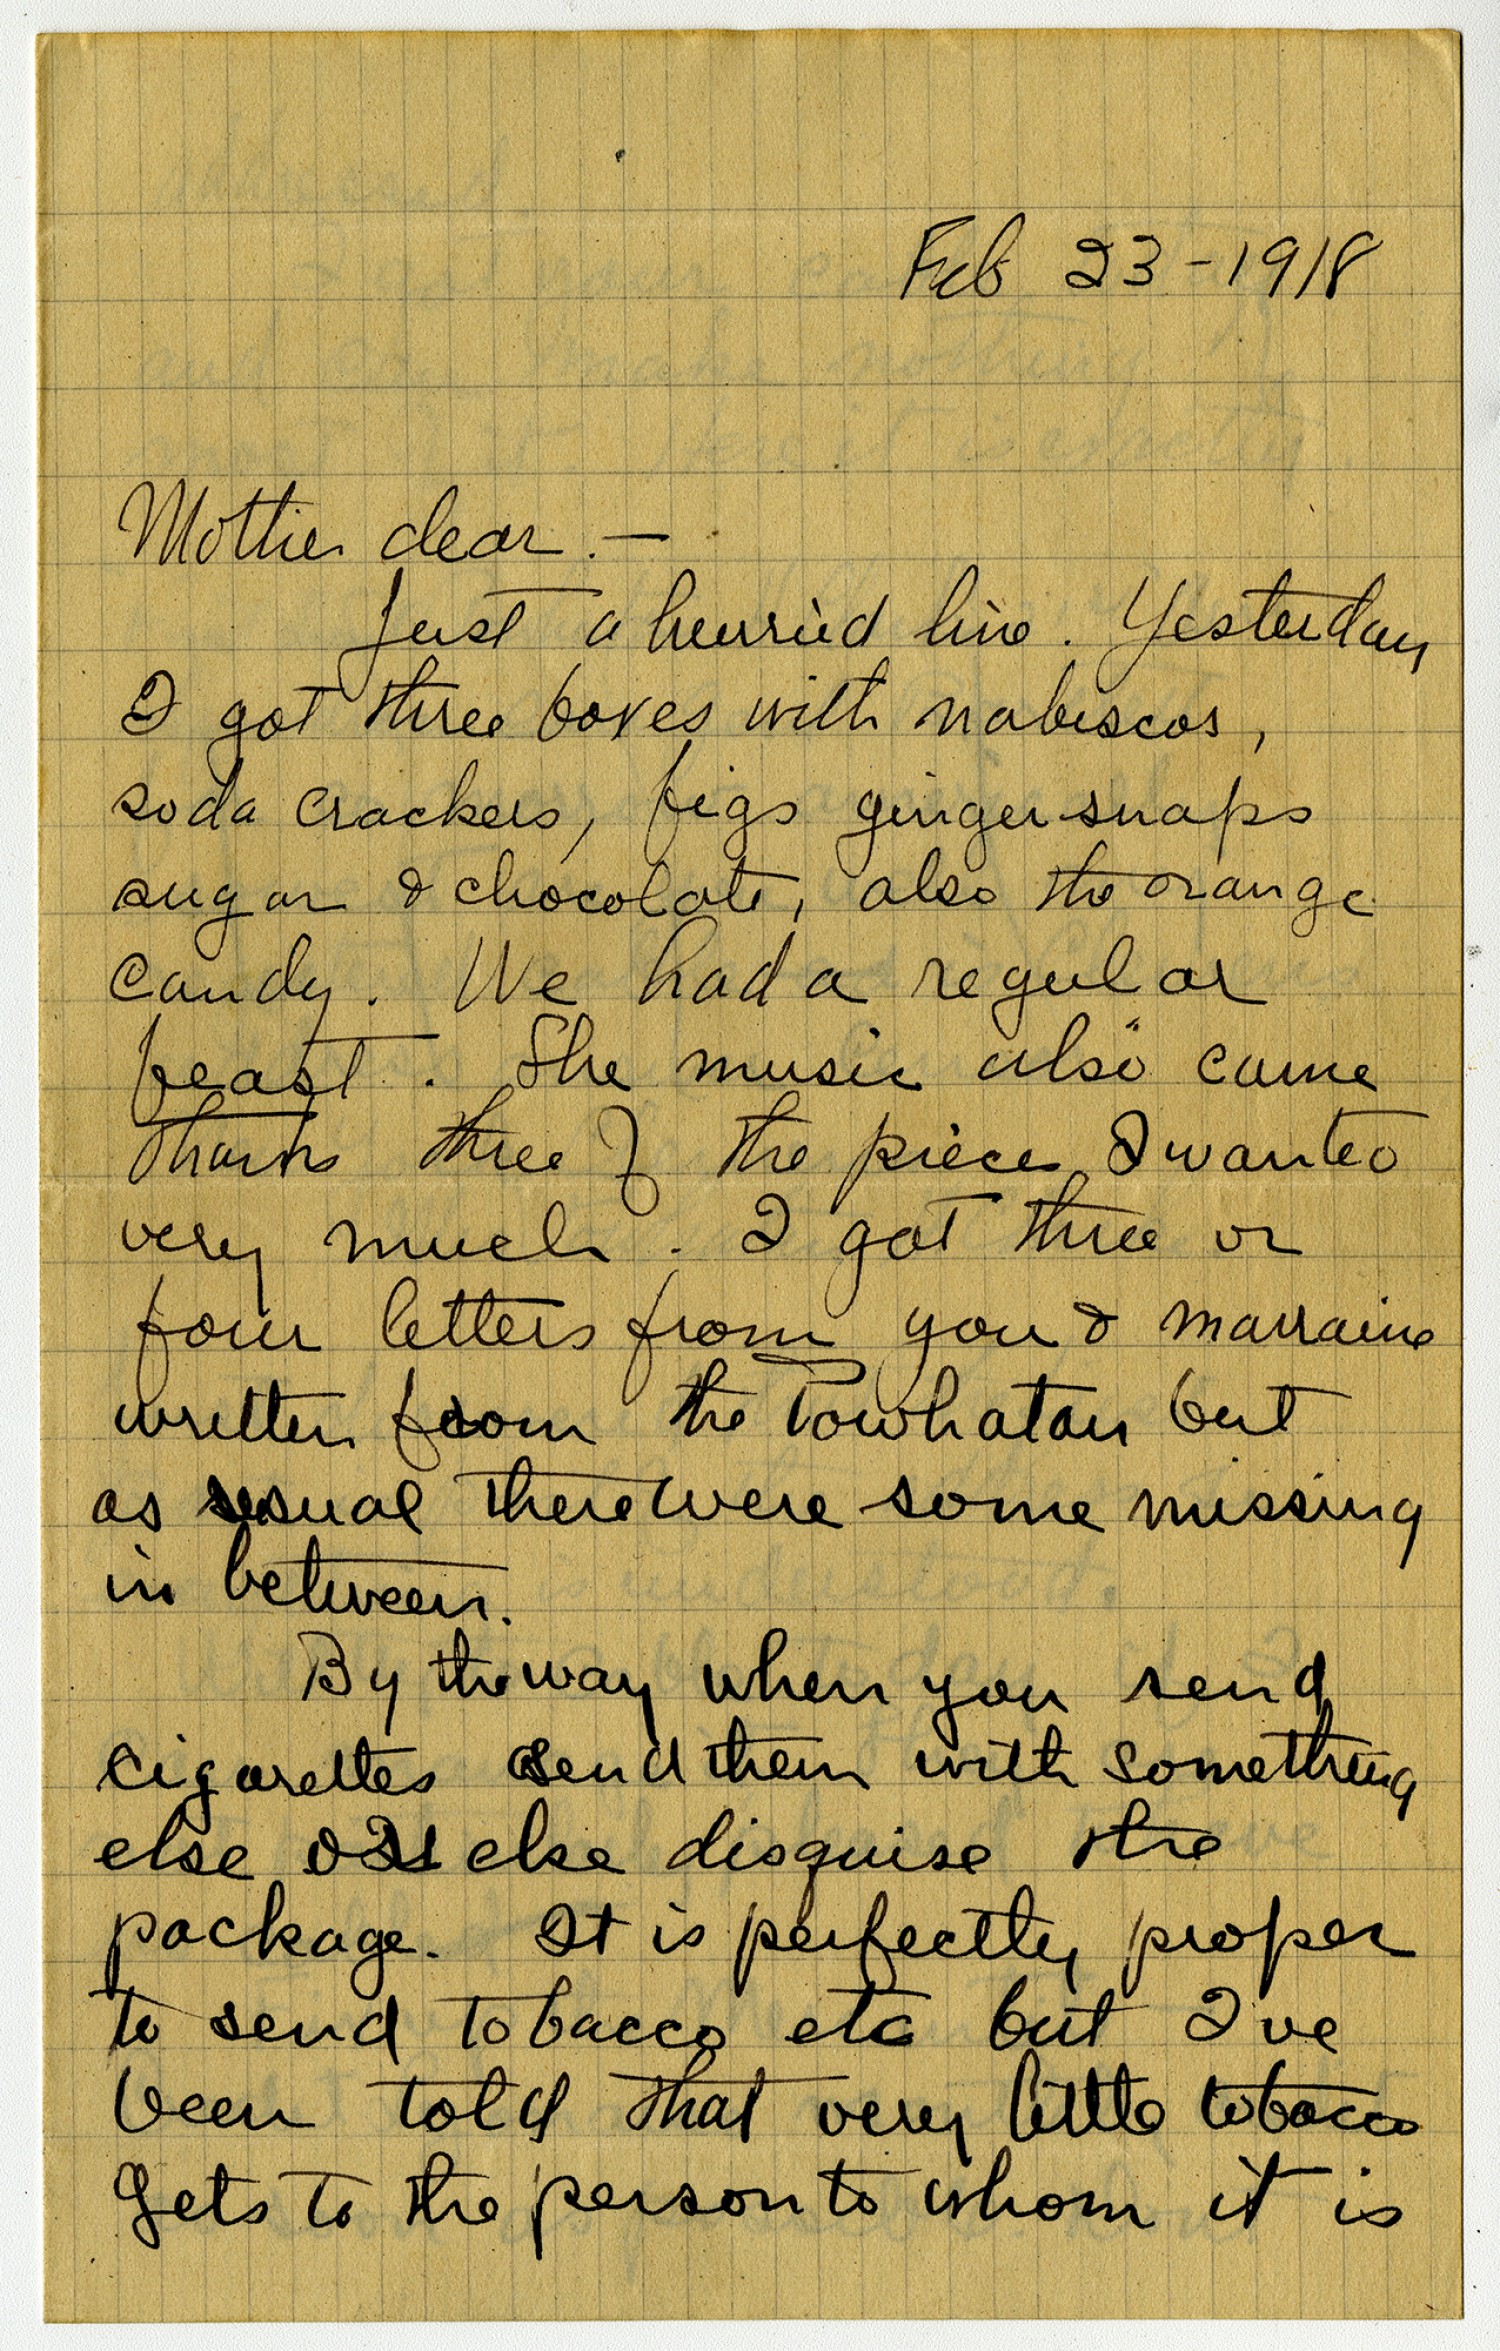 Feb 23-1918
Mother dear. —
Just a hurried line. Yesterday
I got three boxes with nabiscos,
soda crackers, figs ginger snaps
sugar & chocolate, also the orange
candy. We had a regular
feast. The music also came
thanks three of the pieces I wanted
very much. I got three or
four letters from you & marraine
written from the Powhatan but
as usual there were some missing
in between.
By the way when you send
cigarettes send them with something
else or else disguise the
package. It is perfectly proper
to send tobacco etc but I've
been told that very little tobacco
gets to the person to whom it is